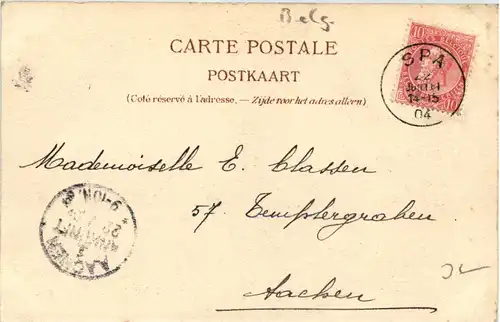 Belg.
CARTE POSTALE
POSTKAART
(Coté réservé à l'adresse. — Zijde voor het adres alleen)
10
10
SPA
22
14-15
04
Mademoiselle E. Classen
57 Templergraben
Aachen
AACHEN
9-10N.